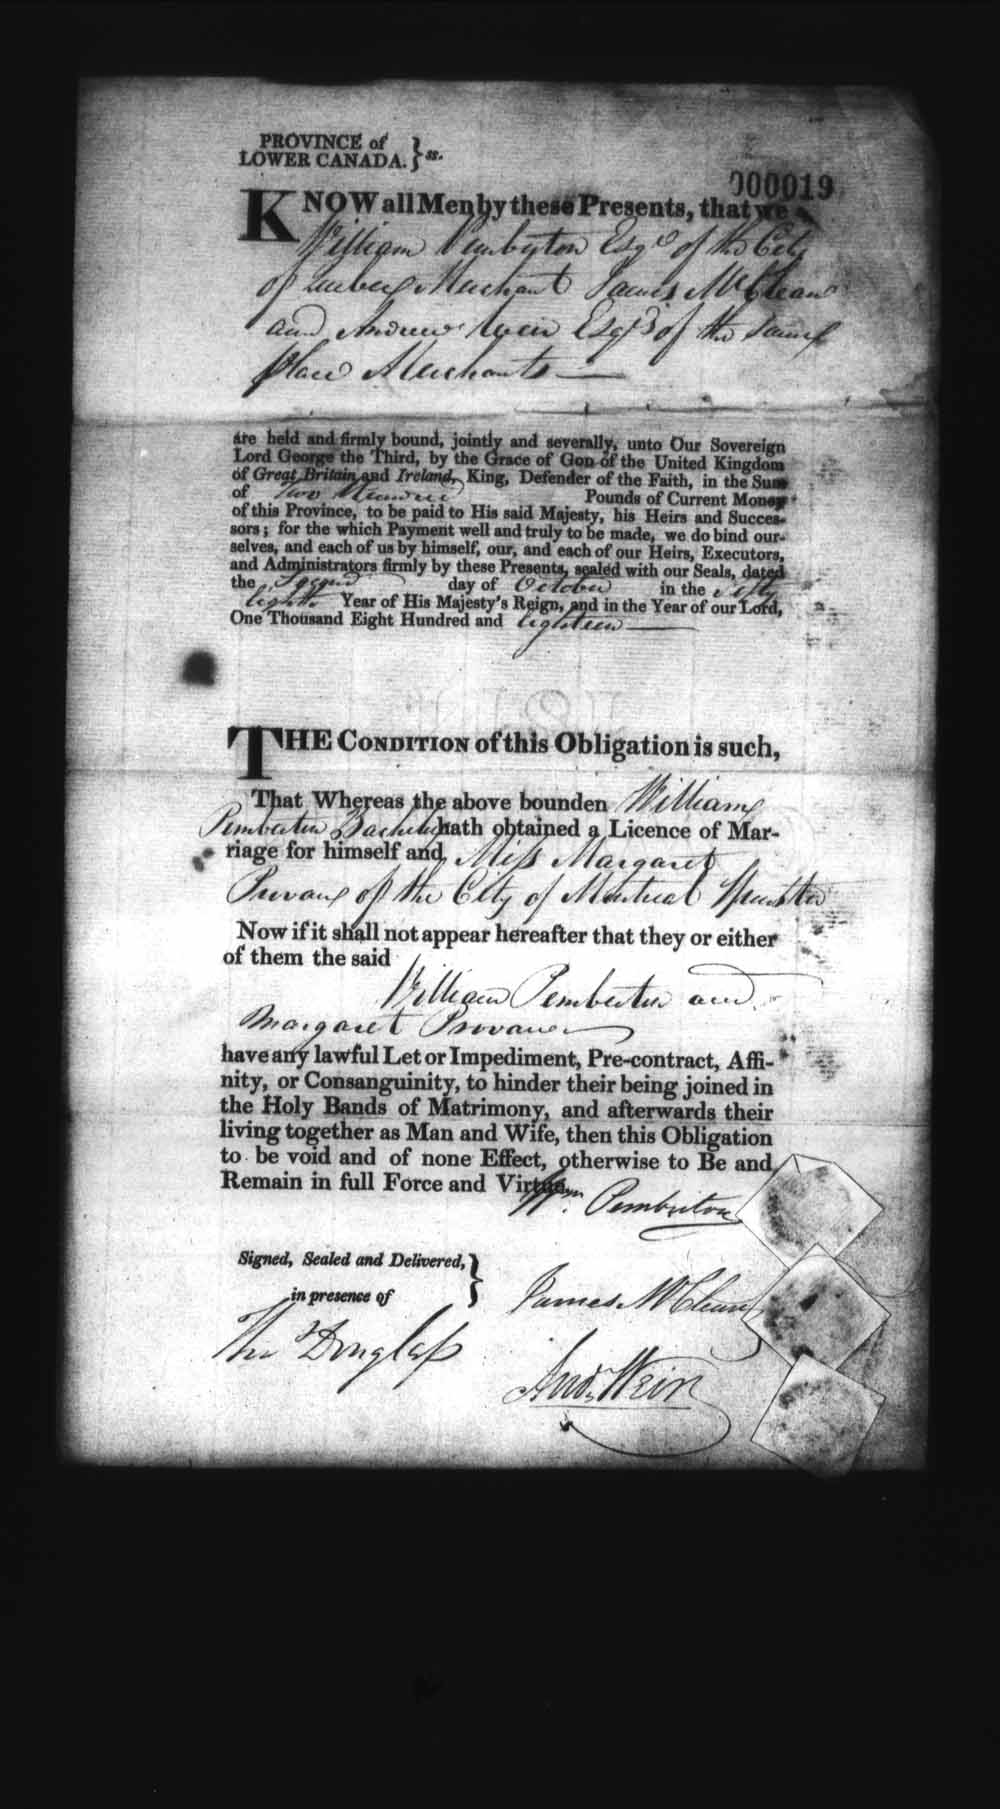 PROVINCE of
LOWER CANADA. } ss.
000019
KNOW all Men by these Presents, that we
William Pemberton Esqre of the City
of Quebec Merchant James McClean
and Andrew Weir Esqrs of the same
place Merchants
are held and firmly bound, jointly and severally, unto Our Sovereign
Lord George the Third, by the Grace of GOD of the United Kingdom
of Great Britain and Ireland, King, Defender of the Faith, in the Sum
of Two Hundred Pounds of Current Money
of this Province, to be paid to His said Majesty, his Heirs and Succes-
sors; for the which Payment well and truly to be made, we do bind our-
selves, and each of us by himself, our, and each of our Heirs, Executors,
and Administrators firmly by these Presents, sealed with our Seals, dated
the Second day of October in the Fifty
Eighth Year of His Majesty's Reign, and in the Year of our Lord,
One Thousand Eight Hundred and Eighteen
THE CONDITION of this Obligation is such,
That Whereas the above bounden William
Pemberton Bachelor hath obtained a Licence of Mar-
riage for himself and Miss Margaret
Provan of the City of Montreal Spinster
Now if it shall not appear hereafter that they or either
of them the said
William Pemberton and
Margaret Provan
have any lawful Let or Impediment, Pre-contract, Affi-
nity, or Consanguinity, to hinder their being joined in
the Holy Bands of Matrimony, and afterwards their
living together as Man and Wife, then this Obligation
to be void and of none Effect, otherwise to Be and
Remain in full Force and Virtue.
Wm. Pemberton
Signed, Sealed and Delivered, }
in presence of
James McClean
Thos Douglass
Andw Weir